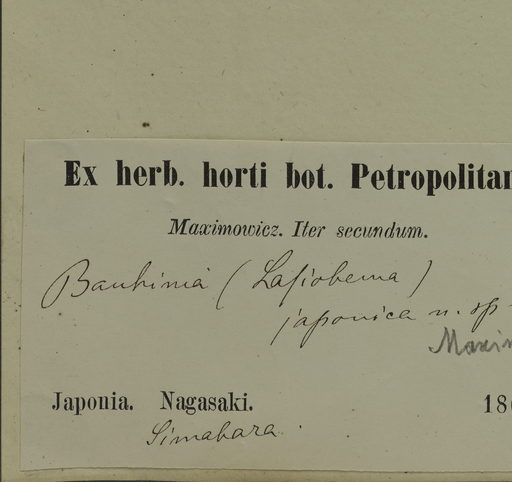 Ex herb. horti bot. Petropolitan
Maximowicz. Iter secundum.
Bauhinia (Lasiobema)
japonica n. sp.
Maxim
Japonia. Nagasaki. 18
Simabara.